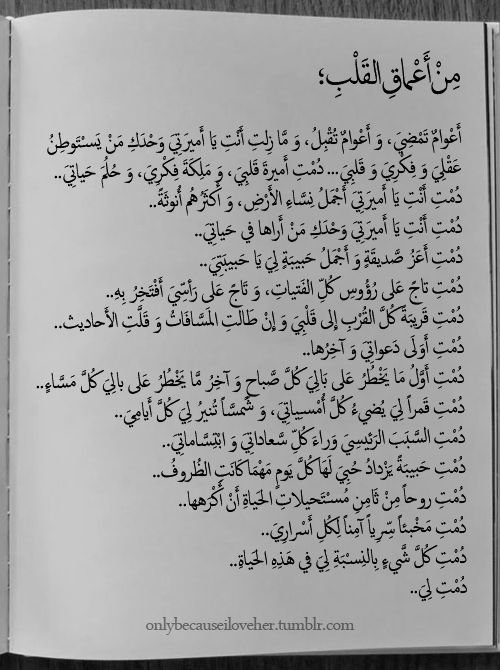 مِنْ أَعْماقِ القَلْبِ؛
أَعْوامٌ تَمْضِيَ، وَ أَعْوامٌ تُقْبِلُ، وَ مَّا زِلتِ أَنْتِ يَا أَميرَتِيَ وَحْدَكِ مَنْ يَسْتَوطِنُ
عَقْلِيَ وَ فِكْرِيَ وَ قَلبِيَ... دُمْتِ أَميرةَ قَلبِيَ، وَ مَلِكَةَ فِكْرِيَ، وَ حُلُمَ حَياتِيَ..
دُمْتِ أَنْتِ يَا أَميرَتِيَ أَجْمَلُ نِسَّاءِ الأَرْضِ، وَ أَكثَرُهُم أُنوثَةً..
دُمْتِ أَنْتِ يَا أَميرَتِيَ وَحْدَكِ مَنْ أَراها في حَياتِيَ..
دُمْتِ أَعَزُ صَّديقَةٍ وَ أَجْمَلُ حَبيبَةٍ لِيَ يَا حَبيبَتِيَ..
دُمْتِ تاجٌ عَلى رُؤُوسِ كُلِّ الفَتياتِ، وَ تَاجٌ عَلى رَأسِّيَ أَفْتَخِرُ بِهِ..
دُمْتِ قَريبَةً كُلَّ القُرْبِ إِلى قَلْبِيَ وَ إِنْ طَالَتِ المَسَّافَاتُ وَ قَلَّتِ الأَحاديث..
دُمْتِ أَوَلَى دَعواتِيَ وَ آخِرُها..
دُمْتِ أَوَّلُ مَا يَخْطُرُ عَلى بَالِيَ كُلَّ صَّباحٍ وَ آخِرُ مَّا يَخْطُرُ عَلى بالِيَ كُلَّ مَسَّاءٍ..
دُمْتِ قَمراً لِيَ يُضيءُ كُلَّ أُمْسِياتِيَ، وَ شَمسَّاً تُنيرُ لِيَ كُلَّ أَيامِيَ..
دُمْتِ السَّبَبَ الرَئِيْسِيَ وَراءَ كُلِّ سَّعاداتِيَ وَ ابْتِسَّاماتِيَ..
دُمْتِ حَبيبَةً يَزْدادُ حُبِيَ لَهَا كُلَّ يَومٍ مَهْمَا كَانَتِ الظُروفُ..
دُمْتِ روحاً مِنْ ثَامِنِ مُسْتَحيلاتِ الحَياةِ أَنْ أَكْرَهها..
دُمْتِ مَخْبَئاً سِّرِياً آمِناً لِكُلِ أَسْرارِيَ..
دُمْتِ كُلَّ شَّيءٍ بِالنِسْبَةِ لِيَ في هَذِهِ الحَياةِ..
دُمْتِ لِيَ..
onlybecauseiloveher.tumblr.com